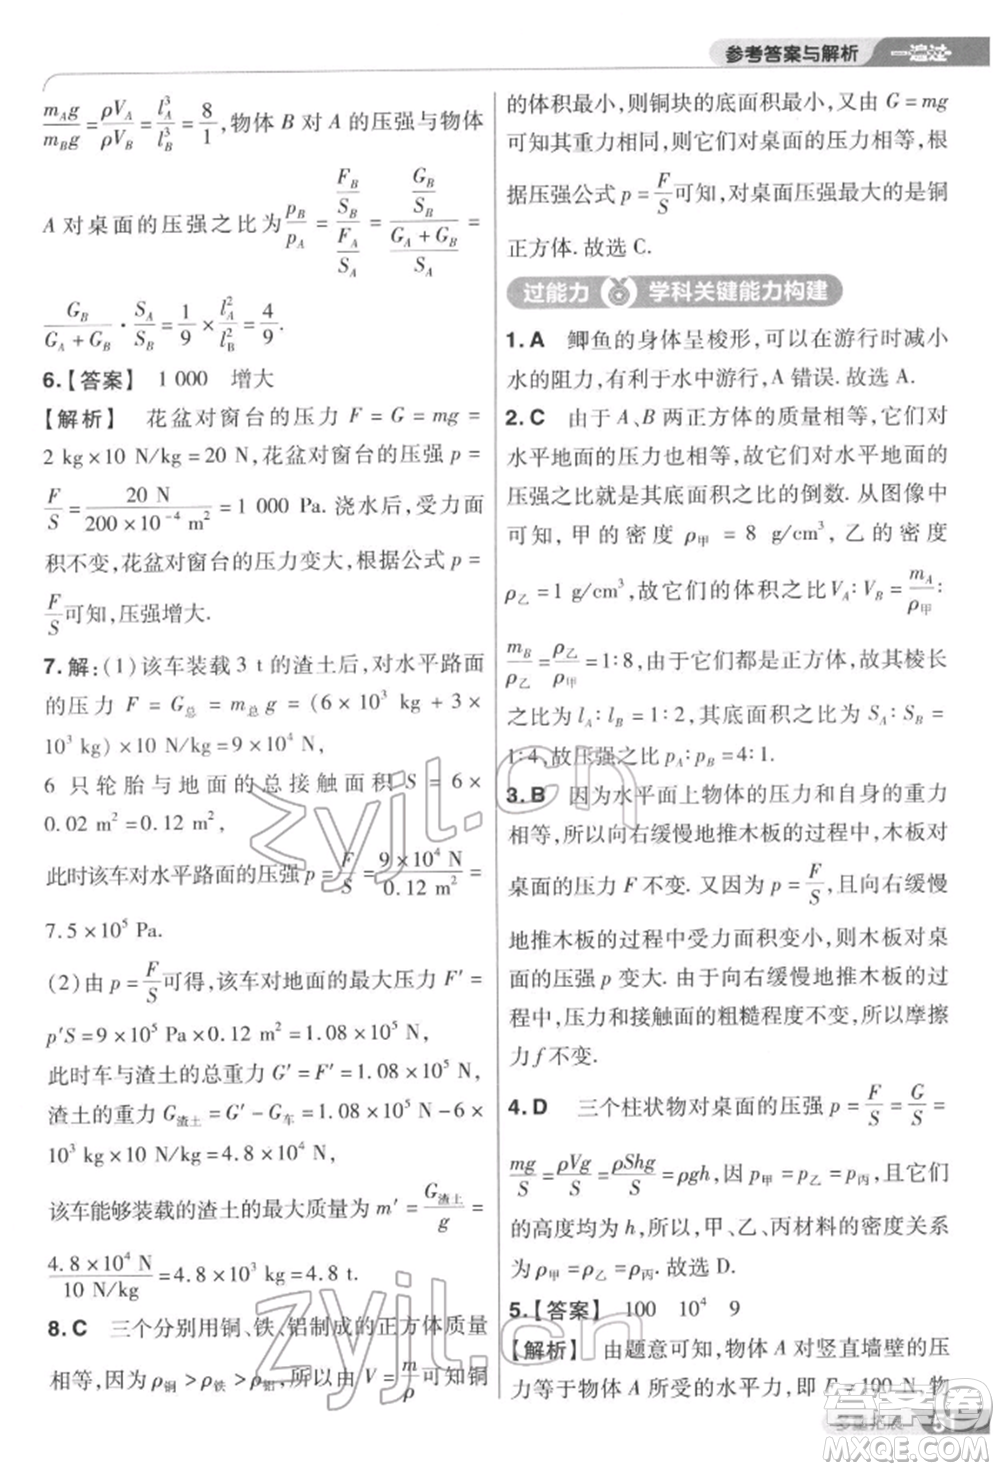 参考答案与解析 一遍过
$\frac{m_Ag}{m_Bg}=\frac{ρV_A}{ρV_B}=\frac{l_A^3}{l_B^3}=\frac{8}{1}$,物体 B 对 A 的压强与物体
A 对桌面的压强之比为$\frac{p_B}{p_A}=\frac{\frac{F_B}{S_B}}{\frac{F_A}{S_A}}=\frac{\frac{G_B}{S_B}}{\frac{G_A+G_B}{S_A}}=$
$\frac{G_B}{G_A+G_B}·\frac{S_A}{S_B}=\frac{1}{9}×\frac{l_A^2}{l_B^2}=\frac{4}{9}$.
6.【答案】 1 000 增大
【解析】 花盆对窗台的压力 F = G = mg =
2 kg×10 N/kg=20 N,花盆对窗台的压强 p =
$\frac{F}{S}=\frac{20 N}{200×10^{-4} m^2}$=1 000 Pa. 浇水后,受力面
积不变,花盆对窗台的压力变大,根据公式 p=
$\frac{F}{S}$可知,压强增大.
7.解:(1)该车装载 3 t 的渣土后,对水平路面
的压力 F = $G_总$ = $m_总$g = (6×10³ kg+3×
10³ kg)×10 N/kg=9×10⁴ N,
6 只轮胎与地面的总接触面积 S = 6×
0.02 m²=0.12 m²,
此时该车对水平路面的压强 p=$\frac{F}{S}=\frac{9×10^4 N}{0.12 m^2}$=
7.5×10⁵ Pa.
(2)由 p=$\frac{F}{S}$可得,该车对地面的最大压力 F′=
p′S=9×10⁵ Pa×0.12 m²=1.08×10⁵ N,
此时车与渣土的总重力 G′=F′=1.08×10⁵ N,
渣土的重力 $G_{渣土}$=G′-$G_车$=1.08×10⁵ N-6×
10³ kg×10 N/kg=4.8×10⁴ N,
该车能够装载的渣土的最大质量为 m′=$\frac{G_{渣土}}{g}$=
$\frac{4.8×10^4 N}{10 N/kg}$=4.8×10³ kg=4.8 t.
8.C 三个分别用铜、铁、铝制成的正方体质量
相等,因为 $ρ_铜$>$ρ_铁$>$ρ_铝$,所以由 V=$\frac{m}{ρ}$可知铜
的体积最小,则铜块的底面积最小,又由 G=mg
可知其重力相等,则它们对桌面的压力相等,根
据压强公式 p=$\frac{F}{S}$可知,对桌面压强最大的是铜
正方体.故选 C.
过能力 学科关键能力构建
1.A 鲫鱼的身体呈梭形,可以在游行时减小
水的阻力,有利于水中游行,A 错误.故选 A.
2.C 由于 A、B 两正方体的质量相等,它们对
水平地面的压力也相等,它们对水平地面的
压强之比就是其底面积之比的倒数.从图像中
可知,甲的密度 $ρ_甲$ = 8 g/cm³,乙的密度
$ρ_乙$=1 g/cm³,故它们的体积之比 $V_A$:$V_B$=$\frac{m_A}{ρ_甲}$:
$\frac{m_B}{ρ_乙}=\frac{ρ_乙}{ρ_甲}$=1:8,由于是正方体,故其棱长
之比为 $l_A$:$l_B$=1:2,其底面积之比为 $S_A$:$S_B$=
1:4,故压强之比为 $p_A$:$p_B$=4:1.
3.B 因为水平面上物体的压力和自身的重力
相等,所以向右缓慢地推木板的过程中,木板对
桌面的压力 F 不变.又因为 p=$\frac{F}{S}$,且向右缓慢
地推木板的过程中受力面积变小,则木板对桌
面的压强 p 变大.由于向右缓慢地推木板的过
程中,压力和接触面的粗糙程度不变,所以摩擦
力 f 不变.
4.D 三个柱状物对桌面的压强 p=$\frac{F}{S}=\frac{G}{S}$=
$\frac{mg}{S}=\frac{ρVg}{S}=\frac{ρShg}{S}$=ρgh,因 $p_甲$=$p_乙$=$p_丙$,且它们
的高度均为 h,所以,甲、乙、丙材料的密度关系
为 $ρ_甲$=$ρ_乙$=$ρ_丙$.故选 D.
5.【答案】 100 10⁴ 9
【解析】 由题意可知,物体 A 对竖直墙壁的压
力等于物体 A 所受的水平力,即 F=100 N,物
zyjl.cn
zyjl.cn
答案圈
MXQE.COM